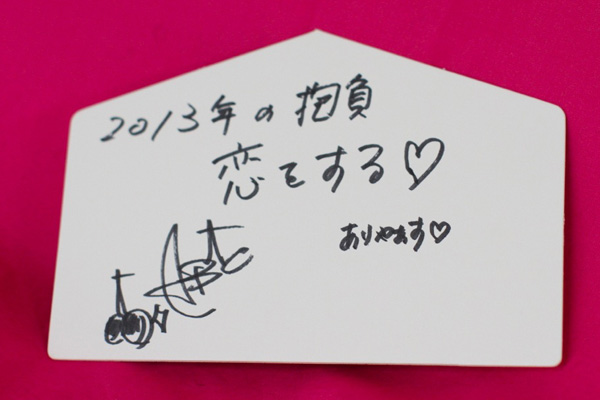 2013年の抱負
恋をする♡
ありやす♡